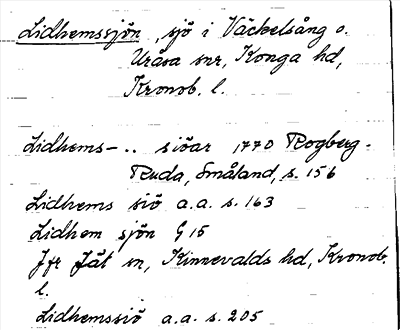 Lidhemssjön, sjö i Väckelsång o.
Uråsa snr, Konga hd,
Kronob. l.
Lidhems-.. siöar 1770 Rogberg-
Ruda, Småland, s. 156
Lidhems siö a.a. s. 163
Lidhem sjön G 15
Jfr Jät sn, Kinnevalds hd, Kronob.
l.
Lidhemssiö a.a. s. 205